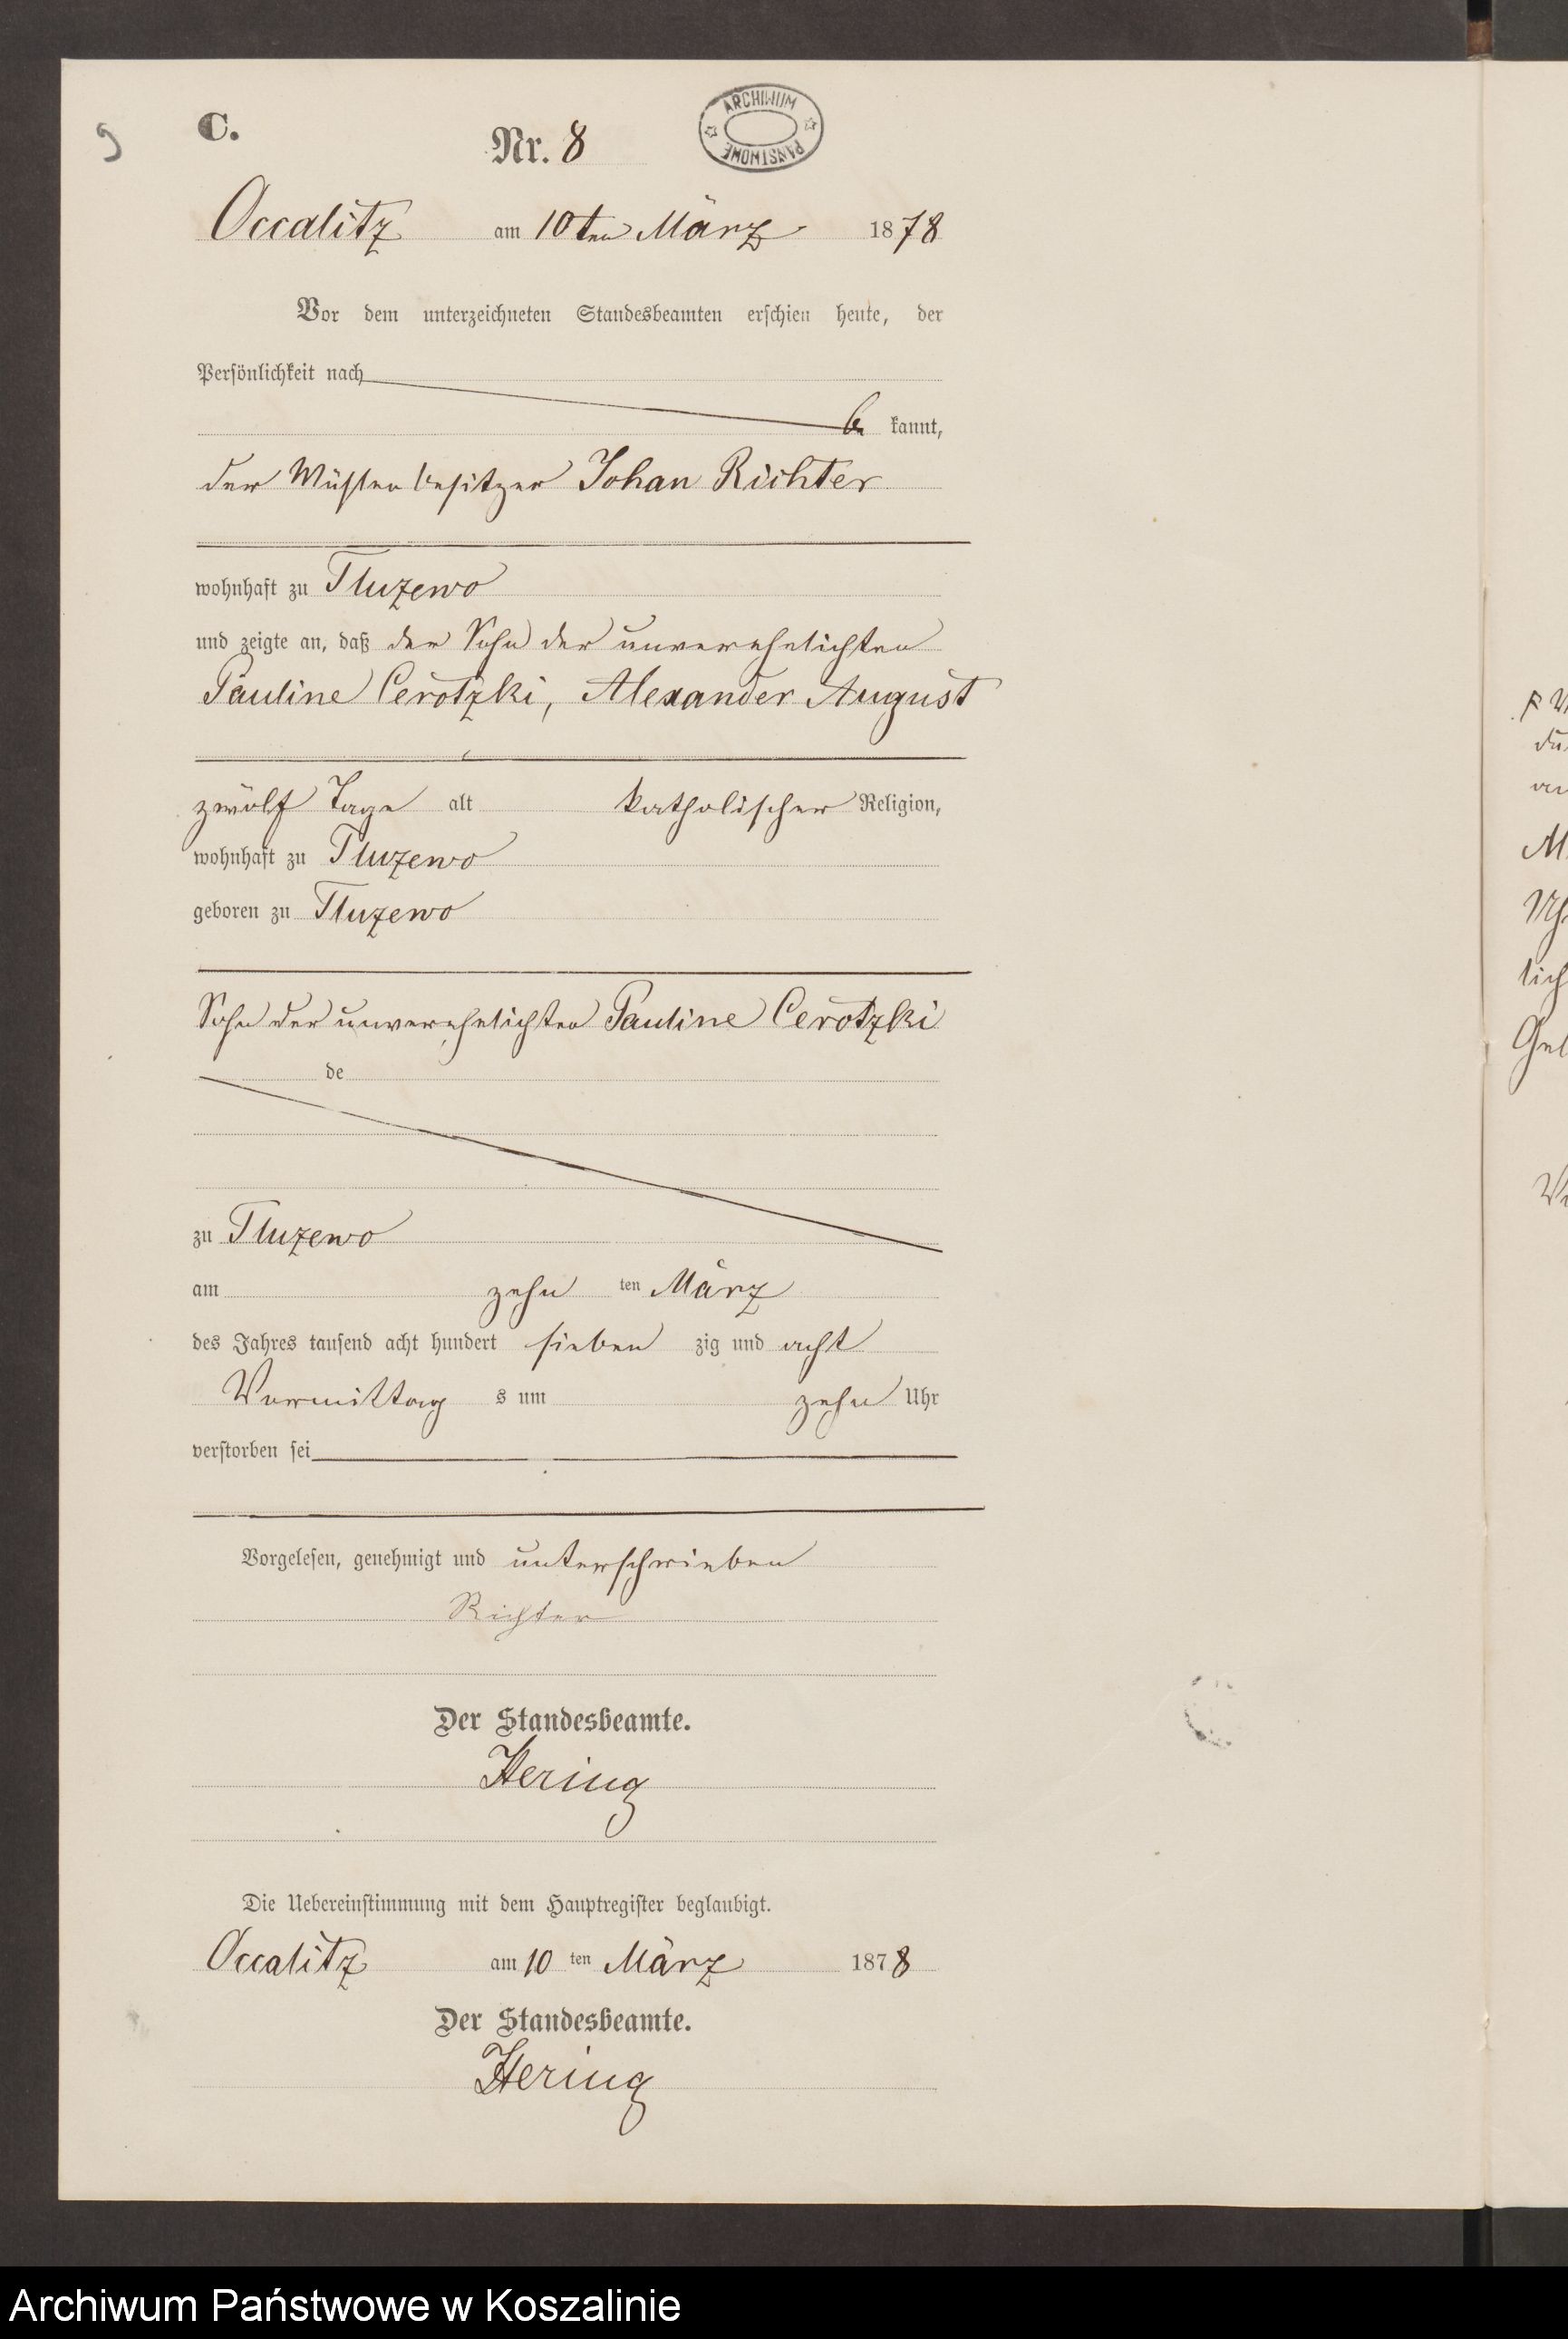 9
C.
Nr. 8
ARCHIWUM PAŃSTWOWE
Occalitz am 10ten März 1878
Vor dem unterzeichneten Standesbeamten erschien heute, der
Persönlichkeit nach
be kannt,
der Mühlenbesitzer Johan Richter
wohnhaft zu Tluzewo
und zeigte an, daß der Sohn der unverehelichten
Pauline Cerotzki, Alexander August
zwölf Tage alt katholischer Religion,
wohnhaft zu Tluzewo
geboren zu Tluzewo
Sohn der unverehelichten Pauline Cerotzki
de
zu Tluzewo
am zehn ten März
des Jahres tausend acht hundert sieben zig und acht
Vormittag s um zehn Uhr
verstorben sei
Vorgelesen, genehmigt und unterschrieben
Richter
Der Standesbeamte.
Hering
Die Uebereinstimmung mit dem Hauptregister beglaubigt.
Occalitz am 10 ten März 1878
Der Standesbeamte.
Hering
Archiwum Państwowe w Koszalinie